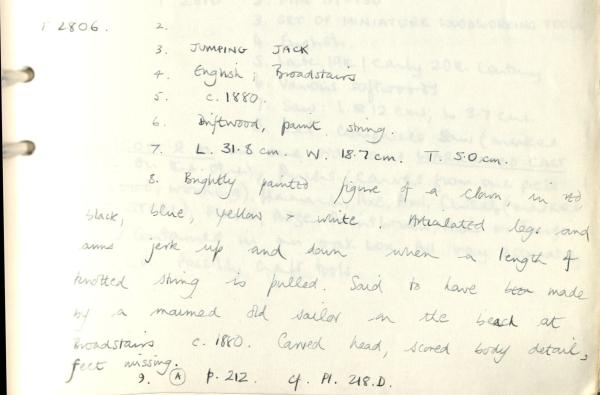 T 2806. 2.
3. JUMPING JACK
4. English; Broadstairs
5. c. 1880.
6. Driftwood, paint, string.
7. L. 31.8 cm. W. 18.7 cm. T. 5.0 cm.
8. Brightly painted figure of a clown, in red
black, blue, yellow & white. Articulated legs and
arms jerk up and down when a length of
knotted string is pulled. Said to have made
by a maimed old sailor on the beach at
Broadstairs c. 1880. Carved head, scored body detail,
feet missing.
9. A p. 212. cf. Pl. 218.D.